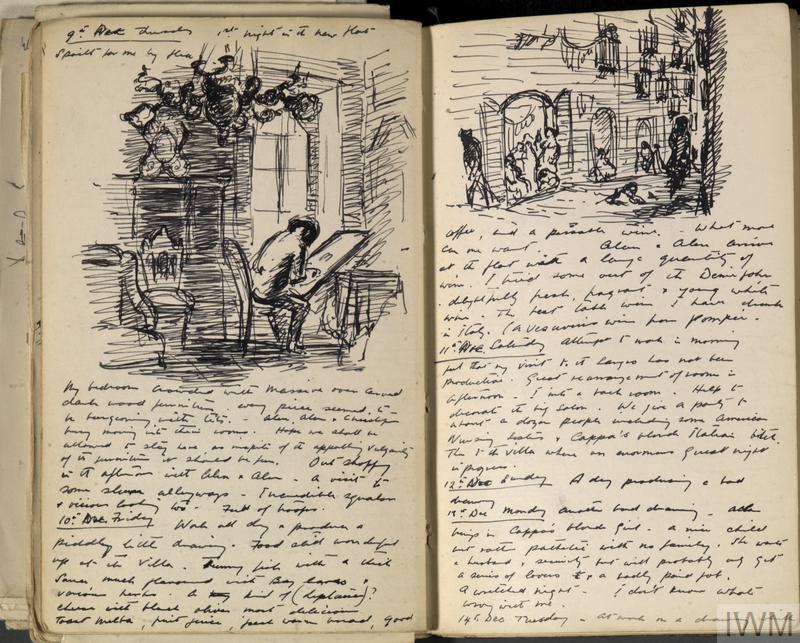 9th Dec Thursday 1st night in the new flat
Spoilt for me by flea
My bedroom crowded with massive over carved
dark wood furniture - every piece seemed to
be burgeoning with tits. - Alan, Alan & Christopher
busy moving into their rooms. Hope we shall be
allowed to stay here as in spite of the appalling vulgarity
of the furniture it should be fun. Out shopping
in the afternoon with Alan & Alan - A visit to
some slum alleyways - Incredible squalor
& vicious looking Full of troops.
10th Dec Friday Work all day & produce a
piddling little drawing. Food still wonderful
up at the Villa. fish with a thick
Sauce much flavoured with Bay leaves &
various herbs. A kind of (elephants)?
cheese with black olives most delicious
Toast Melba, fruit juice, fresh warm bread, good
coffee, and a passable wine. - What more
can one want. Alan & Alan arrive
at the flat with a large quantity of
wine. I tried some out of the Demijohn
delightfully fresh, fragrant & young white
wine. The best table wine I have drunk
in Italy. (A Vesuvius wine from Pompei -
11th Dec Saturday Attempt to work in morning
but find my visit to it has not been
productive. Great rearrangement of rooms in
afternoon - I into a back room. Help to
decorate the big salon. We give a party to
about a dozen people including some American
Nursing Sisters & Cappa's blonde Italian bitch.
The to Villa where an enormous Guest night
in progress.
12th Dec Sunday A day producing a bad
drawing
13th Dec Monday another bad drawing -
brings in Cappa's blonde Girl - a nice child
but rather pathetic with no family. She wants
a husband & security but will probably only get
a series of lovers & a badly paid job.
A wretched night - I don't know what's
wrong with me.
14th Dec Tuesday - At work on a
IWM